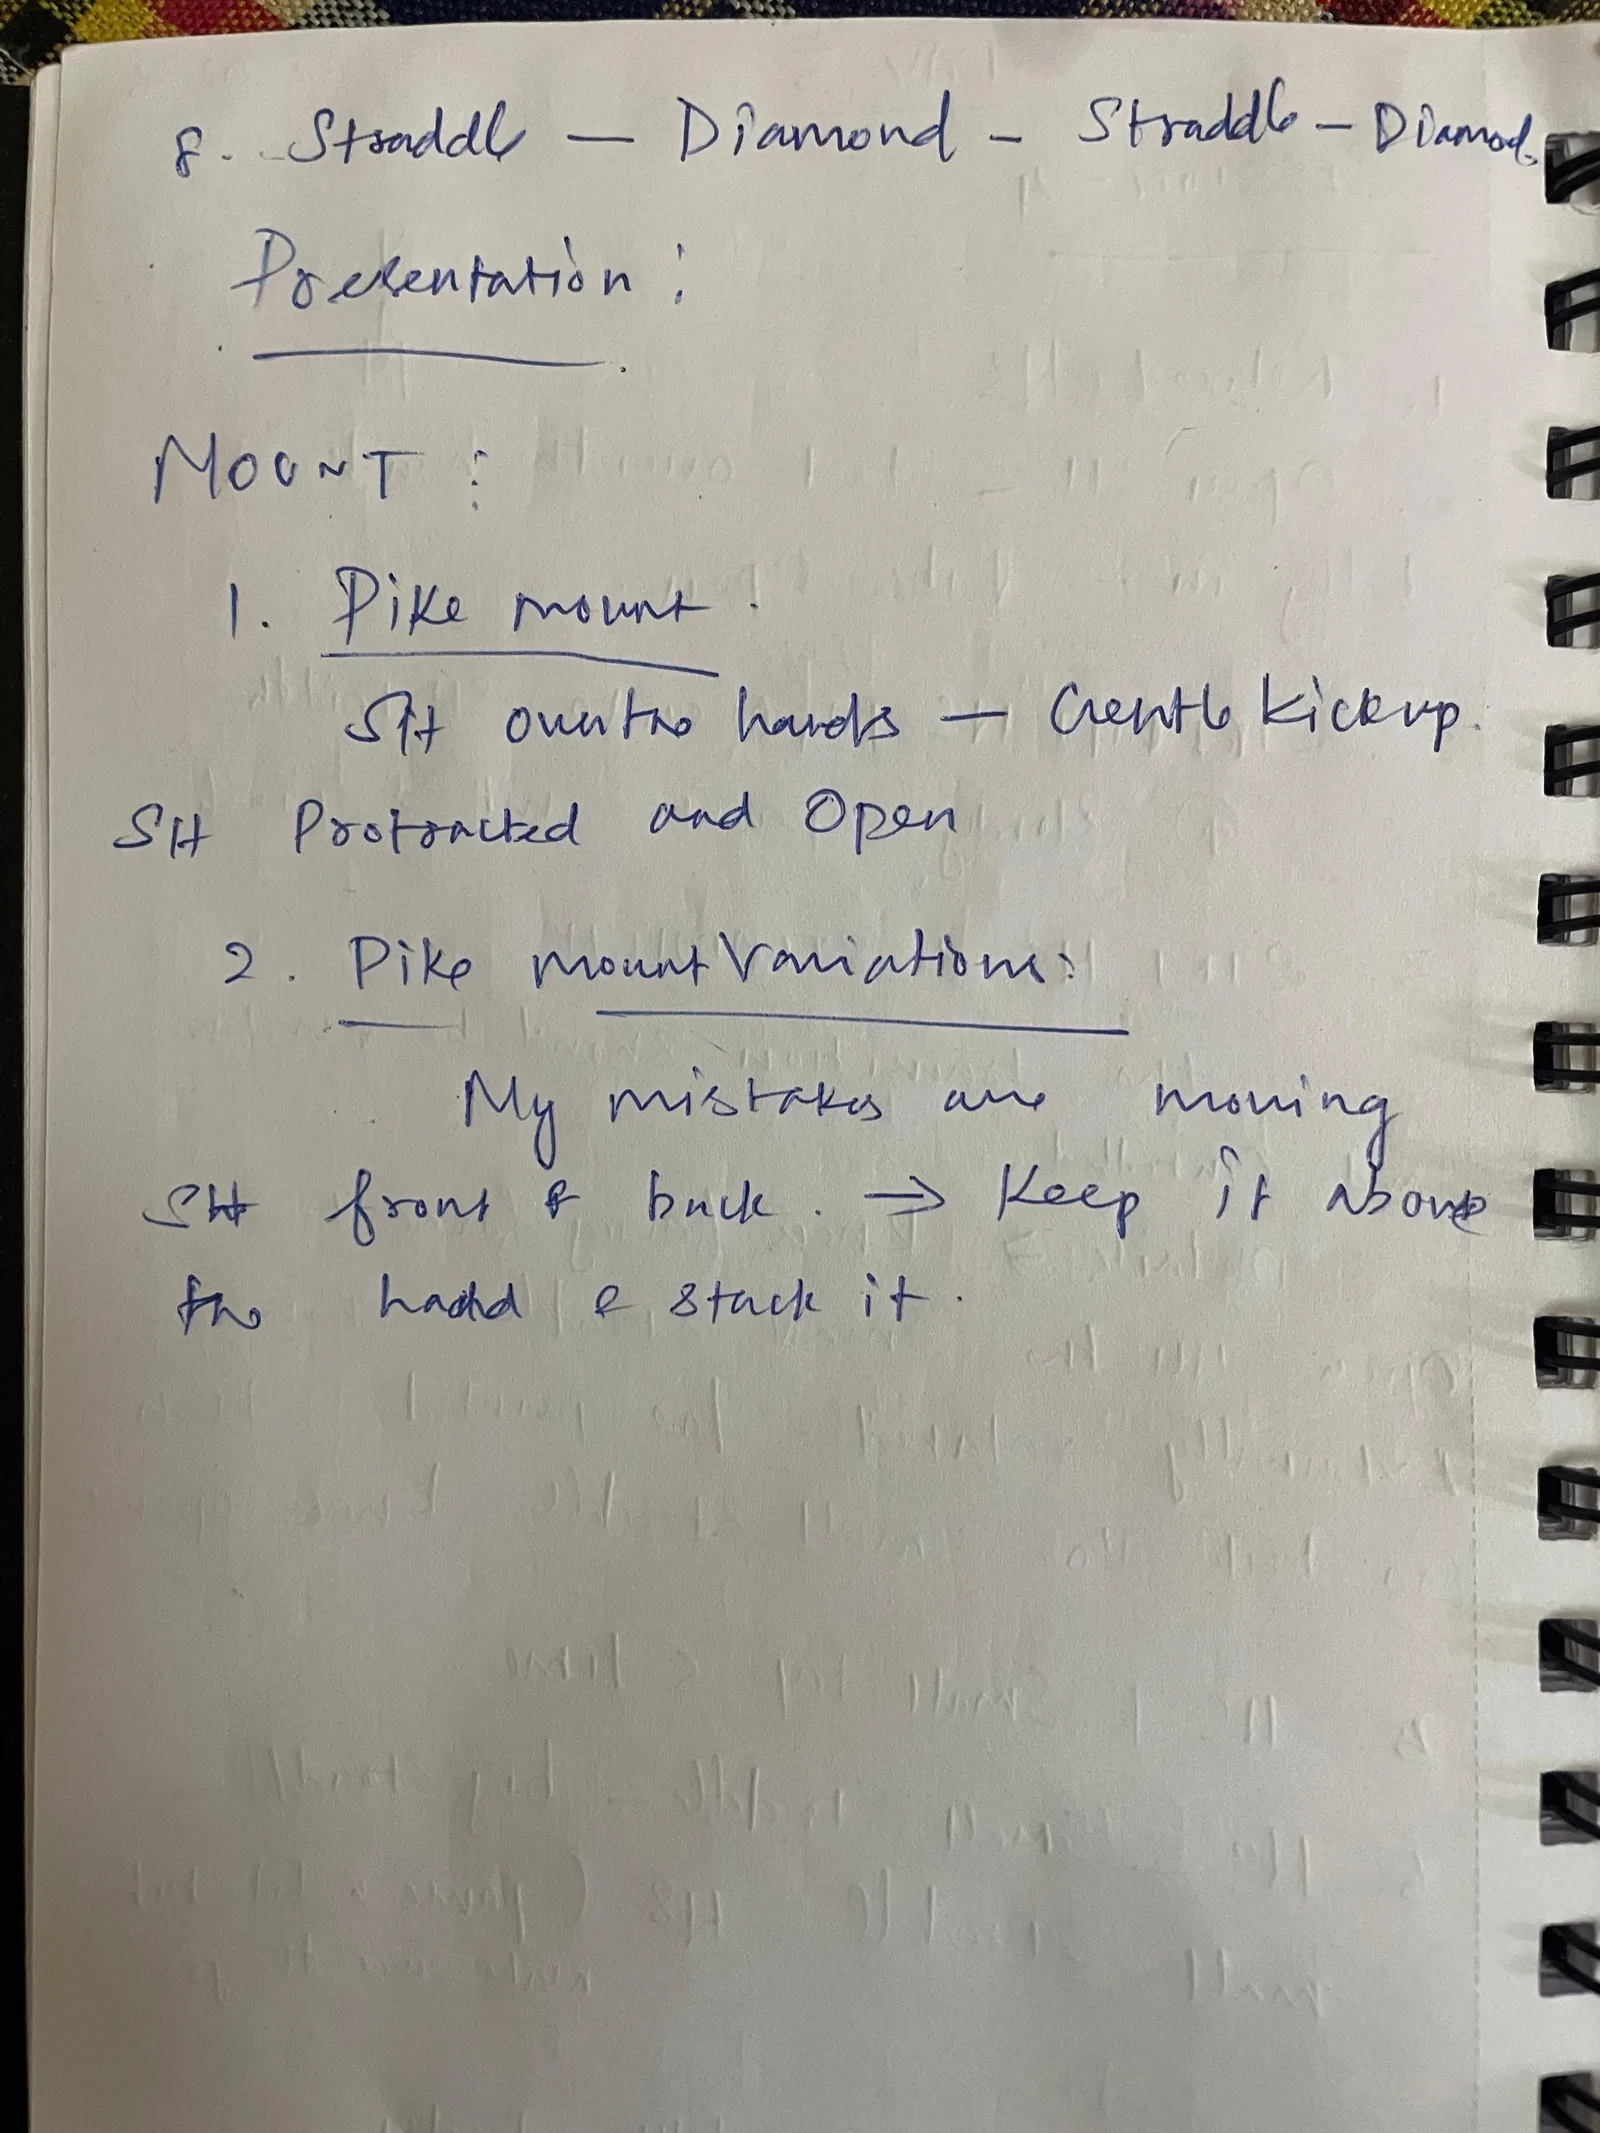 8. Straddle — Diamond - Straddle - Diamod.
Presentation :
MOUNT :
1. Pike mount.
SH over the hands — Gentle kickup.
SH Protracted and Open
2. Pike mount Variations:
My mistakes are moving
SH front & back. → Keep it above
the hadd & stack it.